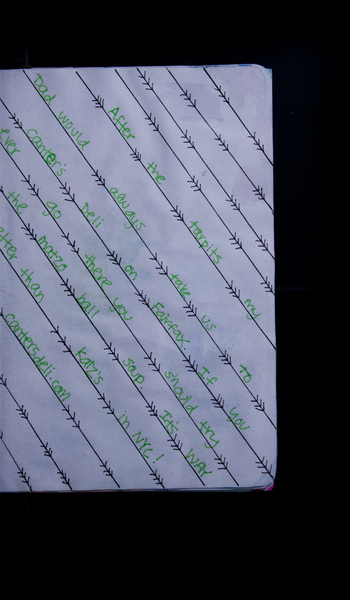 After the tarpits my
Dad would always take us to
Canter's Deli on Fairfax If you
ever go there you should try
the matzo ball soup. It's WAY
etter than Katz's in NYC!
cantersdeli.com